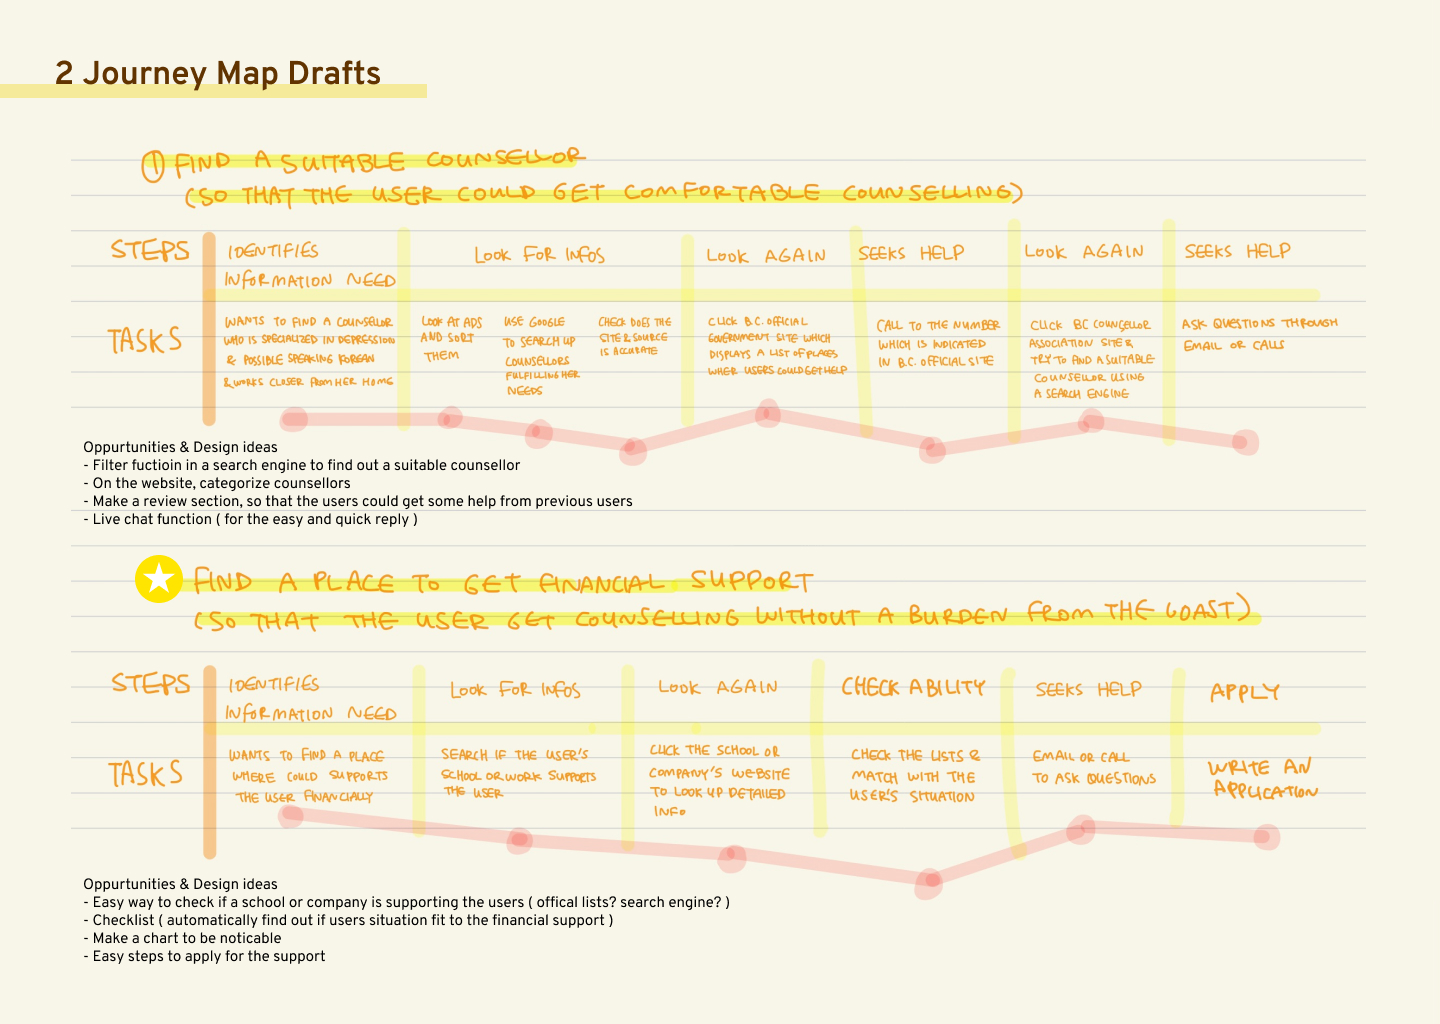 2 Journey Map Drafts
① FIND A SUITABLE COUNSELLOR
(SO THAT THE USER COULD GET COMFORTABLE COUNSELLING)
STEPS
IDENTIFIES
INFORMATION NEED
LOOK FOR INFOS
LOOK AGAIN
SEEKS HELP
LOOK AGAIN
SEEKS HELP
TASKS
WANTS TO FIND A COUNSELLOR
WHO IS SPECIALIZED IN DEPRESSION
& POSSIBLE SPEAKING KOREAN
& WORKS CLOSER FROM HER HOME
LOOK AT ADS
AND SORT
THEM
USE GOOGLE
TO SEARCH UP
COUNSELLORS
FULFILLING HER
NEEDS
CHECK DOES THE
SITE & SOURCE
IS ACCURATE
CLICK B.C. OFFICIAL
GOVERNMENT SITE WHICH
DISPLAYS A LIST OF PLACES
WHER USERS COULD GET HELP
CALL TO THE NUMBER
WHICH IS INDICATED
IN B.C. OFFICIAL SITE
CLICK BC COUNCELLOR
ASSOCIATION SITE &
TRY TO FIND A SUITABLE
COUNSELLOR USING
A SEARCH ENGINE
ASK QUESTIONS THROUGH
EMAIL OR CALLS
Oppurtunities & Design ideas
- Filter fuctioin in a search engine to find out a suitable counsellor
- On the website, categorize counsellors
- Make a review section, so that the users could get some help from previous users
- Live chat function ( for the easy and quick reply )
FIND A PLACE TO GET FINANCIAL SUPPORT
(SO THAT THE USER GET COUNSELLING WITHOUT A BURDEN FROM THE COAST)
STEPS
IDENTIFIES
INFORMATION NEED
LOOK FOR INFOS
LOOK AGAIN
CHECK ABILITY
SEEKS HELP
APPLY
TASKS
WANTS TO FIND A PLACE
WHERE COULD SUPPORTS
THE USER FINANCIALLY
SEARCH IF THE USER'S
SCHOOL OR WORK SUPPORTS
THE USER
CLICK THE SCHOOL OR
COMPANY'S WEBSITE
TO LOOK UP DETAILED
INFO
CHECK THE LISTS &
MATCH WITH THE
USER'S SITUATION
EMAIL OR CALL
TO ASK QUESTIONS
WRITE AN
APPLICATION
Oppurtunities & Design ideas
- Easy way to check if a school or company is supporting the users ( offical lists? search engine? )
- Checklist ( automatically find out if users situation fit to the financial support )
- Make a chart to be noticable
- Easy steps to apply for the support